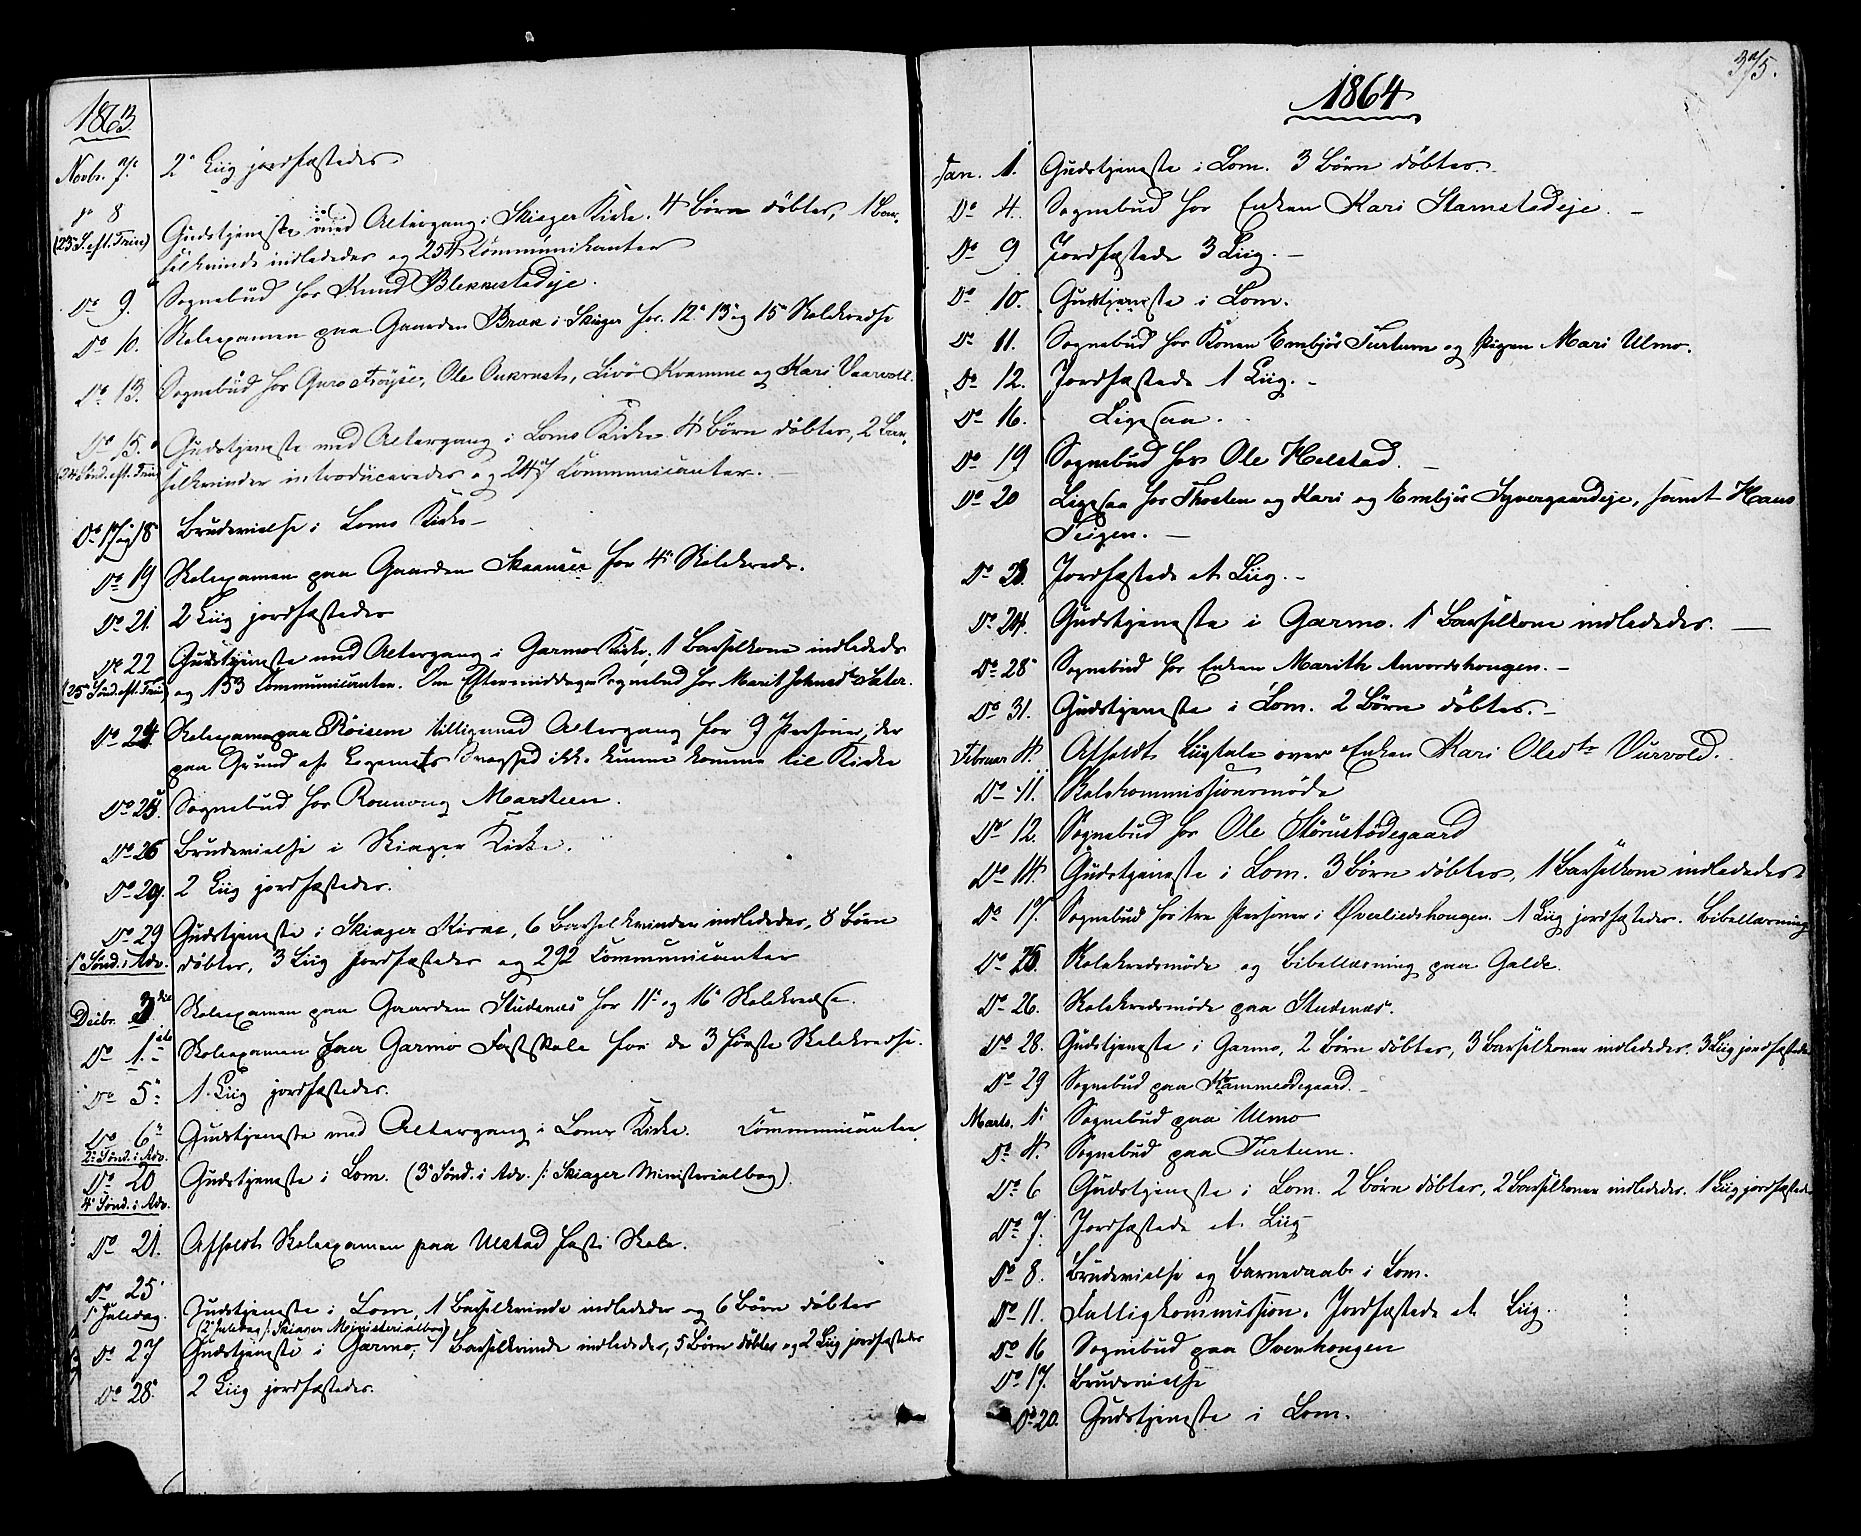 1863
Novbr. 7. 2de Liig jordfæstedes.
d° 8 Gudstjeneste med Altergang i Skiager Kirke. 4 Børn døbtes, 1 Bar-
(23 S. eft. Trin) selkvinde indlededes og 254 Kommunikanter
D° 9. Sognebud hos Knud Blekkestadeje.
D° 10. Skoleexamen paa Gaarden Bræk i Skiager for 12 13 og 15 Skolekredse
D° 13. Sognebud hos Guro Frøyse, Ole Aukrust, Livø Kvamme og Kari Vaarvoll.
D° 15. Gudstjeneste med Altergang i Loms Kirke 4 Børn døbtes, 2 Bar-
(24 Sönd. eft. Trin) selkvinder introduceredes og 247 Communicanter. —
D° 17 og 18 Brudevielse i Loms Kirke —
D° 19 Skoleexamen paa Gaarden Skaanser for 4de Skolekreds.
D° 21. 2 Liig jordfæstedes
D° 22 Gudstjeneste med Altergang i Garmo Kirke, 1 Barselkone indlededes
(25 Sönd. eft. Trin) og 153 Communicanter. Om Eftermiddagen Sognebud hos Marit Johnsdtr Sæter.
D° 24 Skoleexamen paa Röisem tilligemed Altergang for 9 Personer, der
paa Grund af Legemets Svaghed ikke kunne komme til Kirke
D° 25. Sognebud hos Rønnoug Marsteen.
D° 26 Brudevielse i Skiager Kirke.
D° 29. 2 Liig jordfæstedes.
D° 29 Gudstjeneste i Skiager Kirke, 6 Barselkvinder indlededes, 8 Börn
1ste Sönd. i Adv. döbtes, 3 Liig jordfæstedes og 292 Communicanter
Decbr. 3die Skoleexamen paa Gaarden Studenæs for 11 og 16 Skolekredse.
D° 1. Skoleexamen paa Garmo Fastskole for de 3 første Skolekredse.
D° 5. 1 Liig jordfæstedes.
D° 6. Gudstjeneste med Altergang i Loms Kirke. Communicanter.
2. Sönd. i Adv.
D° 20 Gudstjeneste i Lom. (3 Sönd. i Adv. /: Skiager Ministerialbog).
4 Sönd. i Adv.
D° 21. Afholdt Skoleexamen paa Ulstad fast Skole.
D° 25.
1. Juledag. Gudstjeneste i Lom, 1 Barselkvinde indlededes og 6 Börn döbtes
(2 Juledag /: Skiager Ministerialbog)
D° 27 Gudstjeneste i Garmo, 1 Barselkvinde indlededes, 5 Börn döbtes og 2 Liig jordfæstedes
D° 28. 2 Liig jordfæstedes.
375.
1864
Jan. 1. Gudstjeneste i Lom. 3 Börn döbtes.
D° 4. Sognebud hos Enken Kari Stamstadeje. —
D° 9 Jordfæstede 3 Liig. —
D° 10. Gudstjeneste i Lom.
D° 11. Sognebud hos Konen Embjör Furtum og Pigen Mari Ulmo.
D° 12. Jordfæstede 1 Liig. —
D° 16. Ligesaa.
D° 19 Sognebud hos Ole Helstad. —
D° 20 Ligesaa hos Thosten og Kari og Embjör Sypergaardeje, samt Hans
Teigen. —
D° 23. Jordfæstede et Liig. —
D° 24. Gudstjeneste i Garmo. 1 Barselkone indlededes. —
D° 28. Sognebud hos Enken Marith Anvordshougen. —
D° 31. Gudstjeneste i Lom. 2 Börn döbtes. —
Februar 4. Afholdt Liigtale over Enken Kari Olsdtr Vurvold.
D° 11. Skolekommissionsmöde
D° 12. Sognebud hos Ole Störustödegaard
D° 14. Gudstjeneste i Lom. 3 Börn döbtes, 1 Barselkone indlededes
D° 17. Sognebud hos tre Personer i Øverliedshougen. 1 Liig jordfæstedes. Bibellæsning
D° 25. Skolekredsmöde og Bibellæsning paa Galde.
D° 26. Skolekredsmöde paa Studenæs.
D° 28. Gudstjeneste i Garmo, 2 Börn döbtes, 3 Barselkoner indlededes. 3 Liig jordfæstede
D° 29 Sognebud paa Krammeödegaard. —
Marts. 1. Sognebud paa Ulmo
D° 4. Sognebud paa Furtum.
D° 6 Gudstjeneste i Lom. 2 Börn döbtes, 2 Barselkoner indlededes. 1 Liig jordfæstede
D° 7. Jordfæstede et Liig
D° 8. Brudevielse og Barnedaab i Lom.
D° 11. Fattigkommission. Jordfæstede et Liig.
D° 16 Sognebud paa Svenhougen
D° 17. Brudevielse
D° 20. Gudstjeneste i Lom.